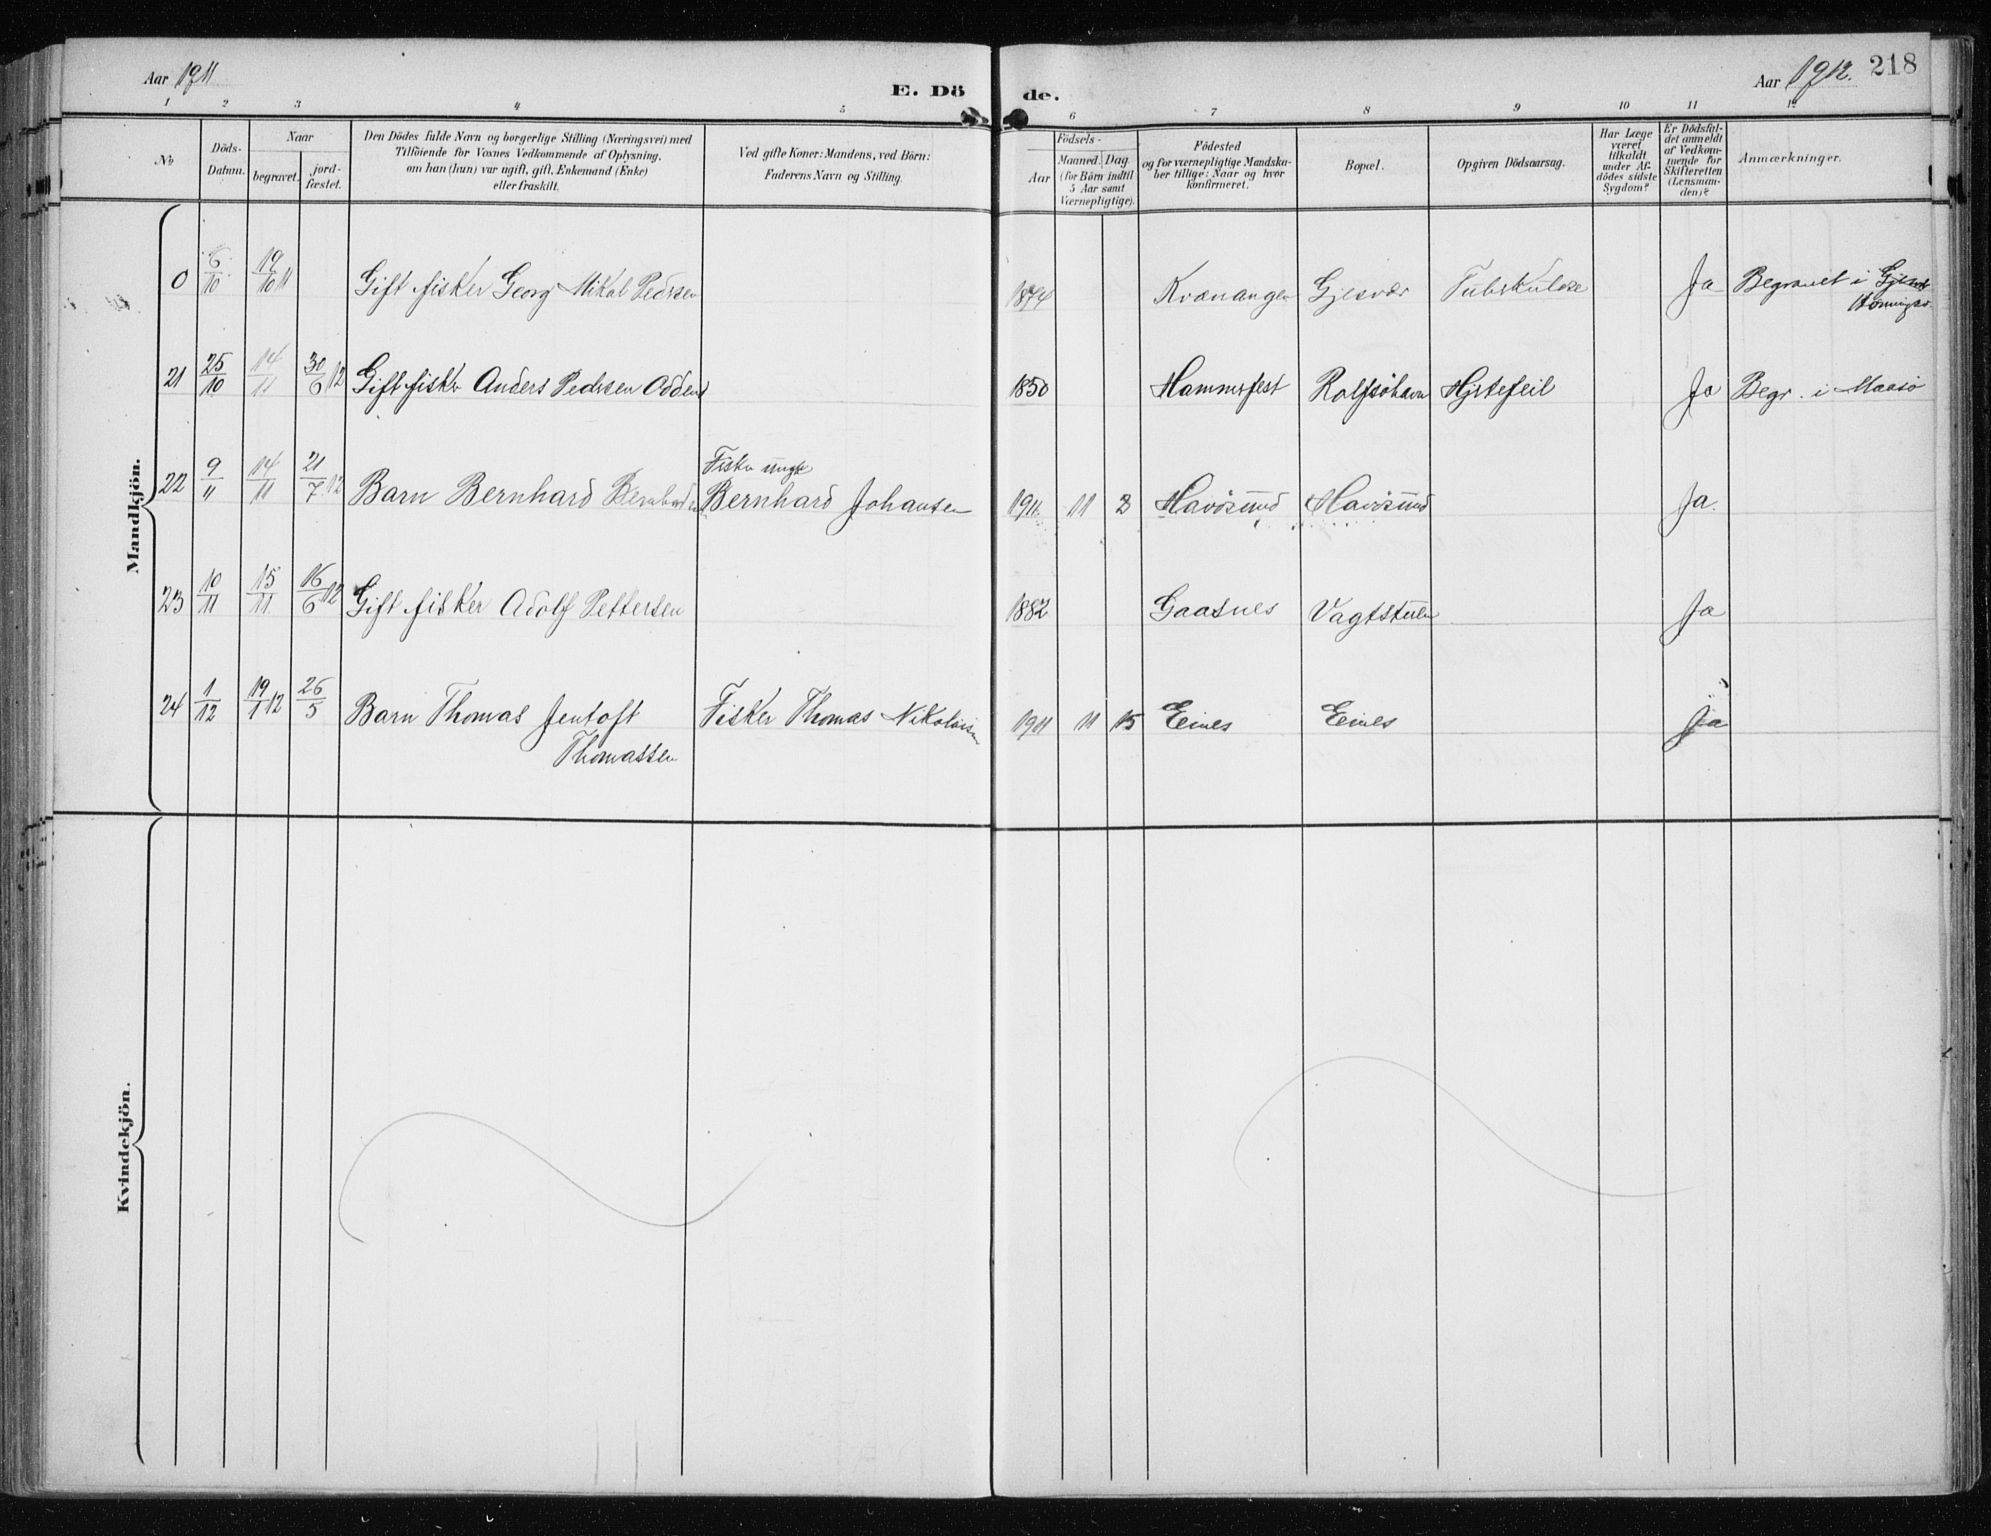 Aar 1911
E. Döde.
Aar 1912.
218
1 2 3 4 5 6 7 8 9 10 11 12
No
Döds-
Datum.
Naar
begravet.
jord-
fæstet.
Den Dödes fulde Navn og borgerlige Stilling (Næringsvei) med
Tilföiende for Voxnes Vedkommende af Oplysning,
om han (hun) var ugift, gift, Enkemand (Enke)
eller fraskilt.
Ved gifte Koner: Mandens, ved Börn:
Faderens Navn og Stilling.
Födsels-
Aar
Maaned.
Dag
(for Börn indtil
5 Aar samt
Værnepligtige).
Födested
og for værnepligtige Mandska-
ber tillige: Naar og hvor
konfirmeret.
Bopæl.
Opgiven Dödsaarsag.
Har Læge
været
tilkaldt
under Af-
dödes sidste
Sygdom?
Er Dödsfal-
det anmeldt
af Vedkom-
mende for
Skifteretten
(Lensman-
den)?
Anmærkninger.
Mandkjön.
0 6/10 19/10 11 Gift fisker Georg Mikal Pedersen 1874 Kvænangen Gjesvær Tuberkulose Ja Begravet i
Honningsv.
21 25/10 14/11 30/6 12 Gift fisker Anders Pedersen Odden 1850 Hammerfest Rolfsöhavn Hjertefeil Ja Begr. i Maasö
22 9/11 14/11 21/7 12 Barn Bernhard Fisker
Bernhard Johansen 1911. 11 Havösund Havösund Ja.
23 10/11 15/11 16/6 12 Gift fisker Adolf Pettersen 1882 Gaasnes Ja
24 1/12 19/1 12 26/5 Barn Thomas Jentoft Fisker Thomas Nikolaisen 1911 11 15 Ja
Thomassen
Kvindekjön.